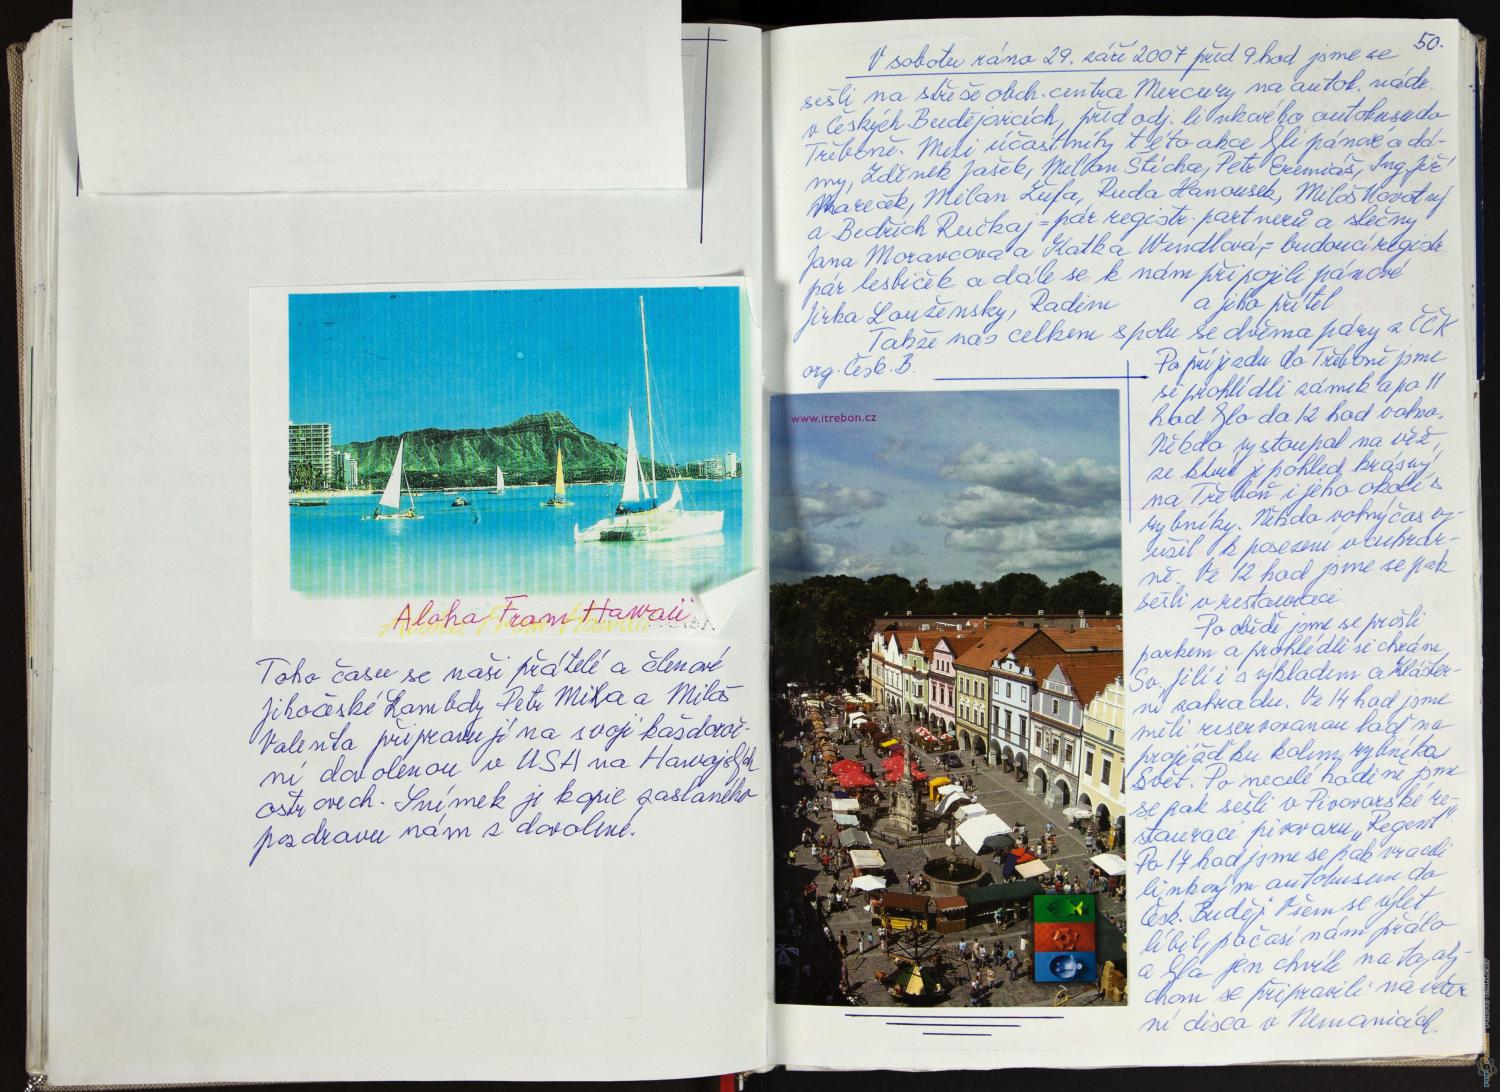 Aloha From Hawaii
Toho času se naši přátelé a členové
Jihočeské Lambdy Petr Mika a Miloš
Valenta připravují na svoji každoroč-
ní dovolenou v USA na Hawajských
ostrovech. Snímek je kopie zaslaného
pozdravu nám z dovolené.
50.
V sobotu ráno 29. září 2007 před 9 hod jsme se
sešli na střeše obch. centra Mercury na autob. nádr.
v Českých Budějovicích, před odj. linkového autobusu do
Třeboně. Mezi účastníky této akce byli pánové a dá-
my, Zdeněk Jašek, Milan Šticha, Petr Eremiáš, Ing. Jiří
Mareček, Milan Žufa, Ruda Hanousek, Miloš Novotný
a Bedřich Ručkaj = pár registr. partnerů a slečny
Jana Moravcova a Katka Wendlová, = budoucí registr.
pár lesbiček a dále se k nám připojili pánové
Jirka Louženský, Radim a jeho přítel
Takže nás celkem spolu se dvěma páry z ČČK
org. Česk. B.
Po příjezdu do Třeboně jsme
si prohlédli zámek a po 11
hod bylo do 12 hod volno.
Někdo vystoupal na věž,
ze které je pohled krásný
na Třeboň i jeho okolí s
rybníky. Někdo volný čas vy-
užil k posezení v cukrár-
ně. Ve 12 hod jsme se pak
sešli v restauraci
Po obědě jsme se prošli
parkem a prohlédli si chrám
Sv. Jilí i s výkladem a klášter-
ní zahradu. Ve 14 hod jsme
měli reservovanou loď na
projížďku kolem rybníka
Svět. Po necelé hodině jsme
se pak sešli v Pivovarské re-
stauraci pivovaru "Regent".
Po 17 hod jsme se pak vraceli
linkovým autobusem do
Česk. Buděj. Všem se výlet
líbil, počasí nám přálo
a byla jen chvíle na to, aby-
chom se připravili na večer-
ní disco v Nemanicích.
www.itrebon.cz